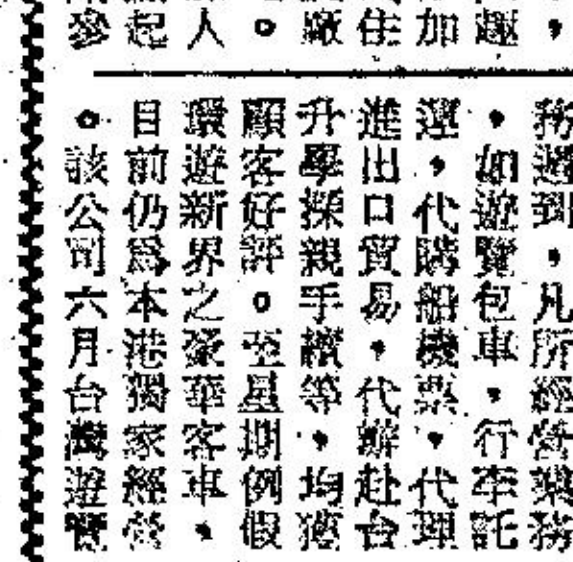 ，
趣
加
住
廠
。
人
起
參
務週到，凡所經營業務
，如遊覽包車，行李託
運，代購船機票，代理
進出口貿易，代辦赴台
升學探親手續等，均獲
顧客好評。至星期例假
環遊新界之豪華客車，
目前仍爲本港獨家經營
。該公司六月台灣遊覽